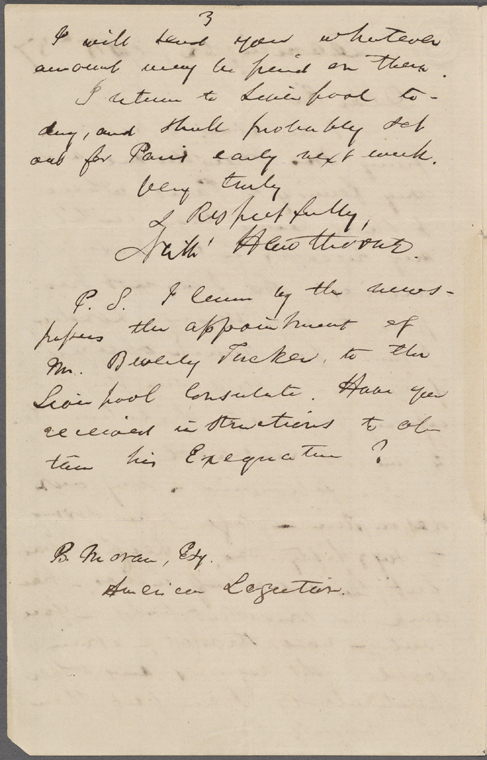 3
I will send you whatever
amount may be paid on them.
I return to Liverpool to-
day, and shall probably set
out for Paris early next week.
Very truly
& Respectfully,
Nath' Hawthorne.
P. S. I learn by the news-
papers the appointment of
Mr. Beverly Tucker, to the
Liverpool Consulate. Have you
received instructions to ob-
tain his Exequatur?
B. Moran, Esq.
American Legation.